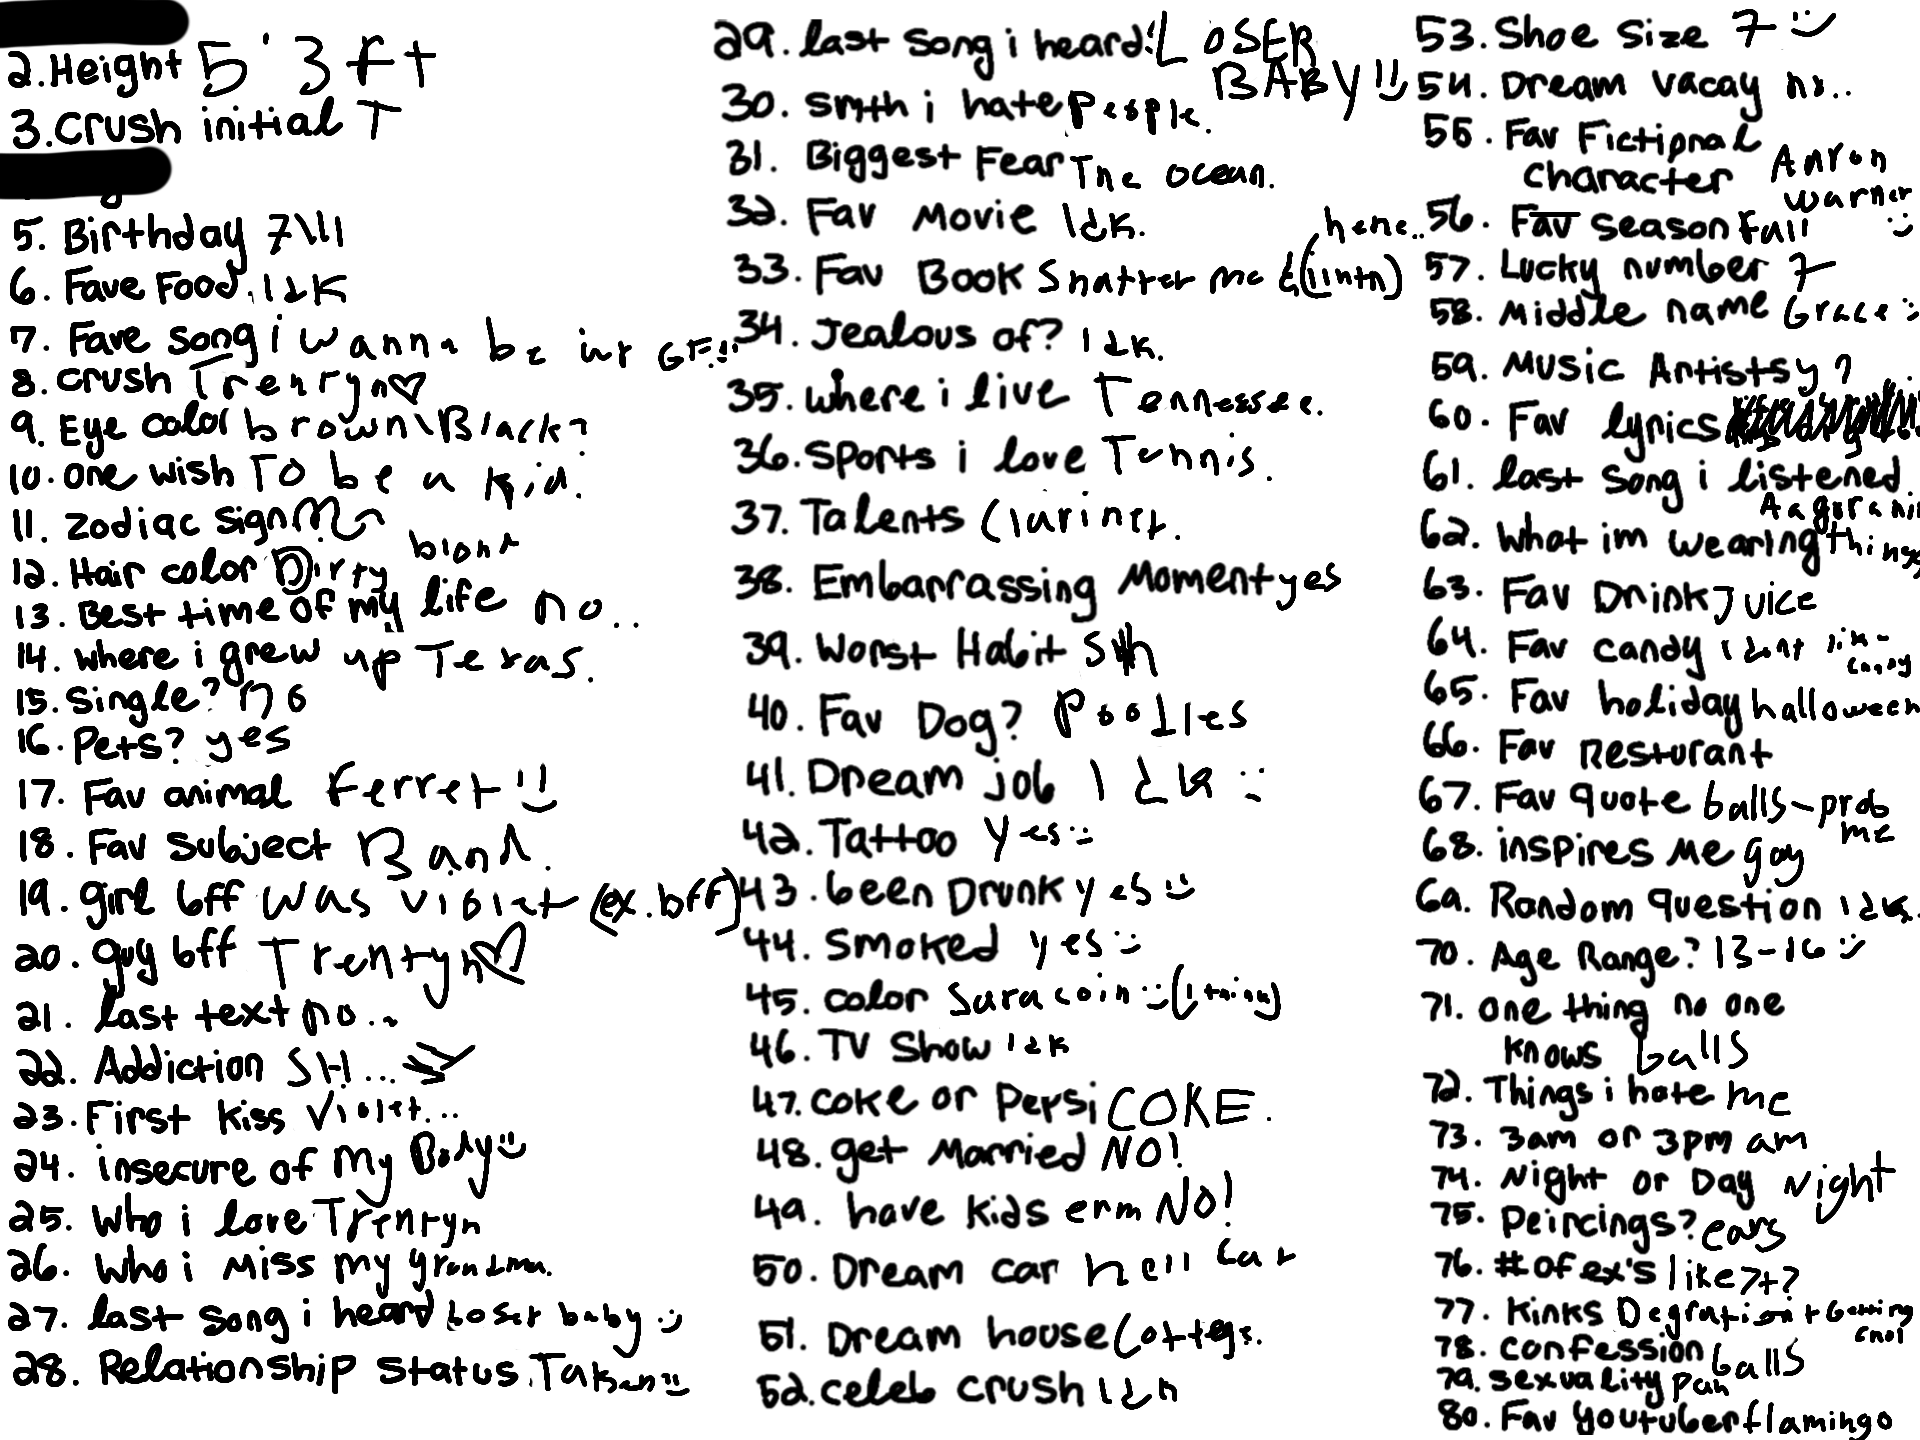 2. Height 5'3ft
3. Crush initial T
5. Birthday 7\11
6. Fave Food. Idk
7. Fave song i wanna be ur GF!!
8. Crush Trentyn♡
9. Eye color brown\Black?
10. one wish To be a kid.
11. zodiac sign
12. Hair color Dirty blond
13. Best time of my life no..
14. where i grew up Texas.
15. Single? no
16. Pets? yes
17. Fav animal Ferret
18. Fav subject Band.
19. girl bff was violet (ex.bff)
20. guy bff Trentyn♡
21. last text no..
22. Addiction SH...
23. First kiss Violet...
24. insecure of my Body
25. Who i love Trentyn
26. Who i miss my grandma.
27. last song i heard Loser baby :)
28. Relationship status Taken
29. last song i heard! LOSER BABY!!
30. smth i hate People.
31. Biggest Fear The ocean.
32. Fav Movie Idk.
33. Fav Book Shatter me
34. Jealous of? Idk.
35. where i live Tennessee.
36. Sports i love Tennis.
37. Talents Clarinet.
38. Embarrassing Moment yes
39. Worst Habit Sh
40. Fav Dog? Poodles
41. Dream job Idk :
42. Tattoo yes :)
43. been Drunk yes :)
44. Smoked yes :)
45. color Saracoin :) (I think)
46. TV Show idk
47. coke or Persi COKE.
48. get Married NO!
49. have kids erm NO!
50. Dream car hell cat
51. Dream house Cottege.
52. celeb crush idk
53. Shoe Size 7 :)
54. Dream vacay no..
55. Fav Fictional
character Aaron warner :)
56. Fav season fall
57. Lucky number 7
58. Middle name Grace :)
59. Music Artists y?
60. Fav lyrics
61. last song i listened
62. What im wearing things
63. Fav Drink Juice
64. Fav candy I dont lik- candy
65. Fav holiday halloween
66. Fav Resturant
67. Fav quote balls-prob me
68. inspires me gay
69. Random question idk.
70. Age Range? 13-16 :)
71. one thing no one
knows balls
72. Things i hate me
73. 3am or 3pm am
74. Night or Day Night
75. Peircings? ears
76. # of ex's like 7+?
78. confession balls
79. sexuality pan
80. Fav youtuber flamingo